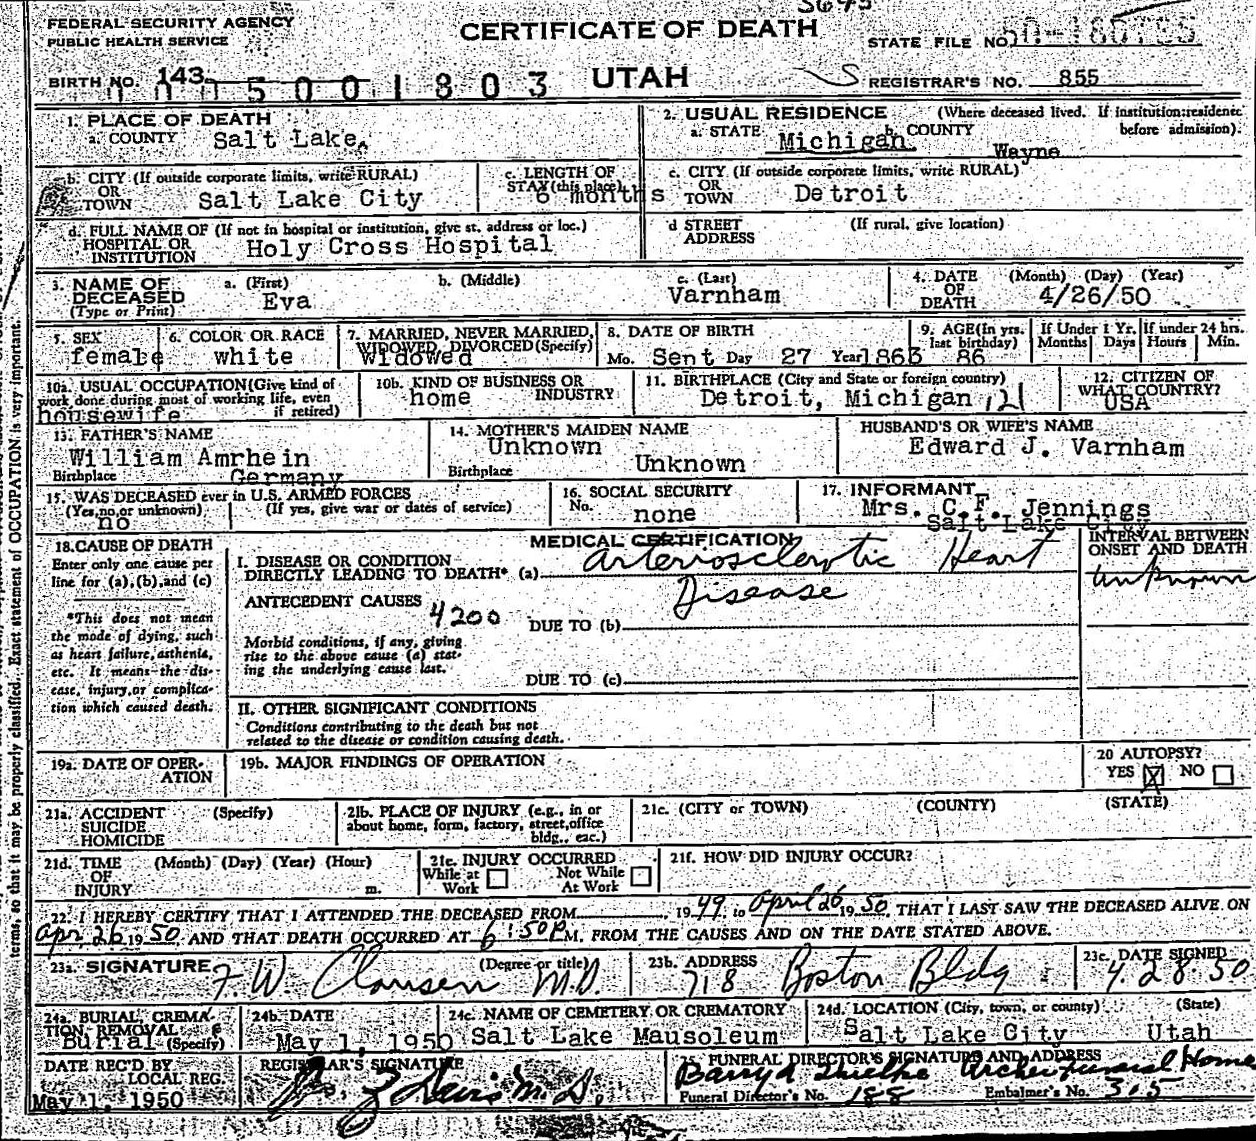 3645
FEDERAL SECURITY AGENCY
PUBLIC HEALTH SERVICE
CERTIFICATE OF DEATH
STATE FILE NO.
BIRTH NO. 143
5001803
UTAH
REGISTRAR'S NO. 855
1. PLACE OF DEATH
a. COUNTY Salt Lake
2. USUAL RESIDENCE (Where deceased lived. If institution:residence before admission).
a. STATE Michigan b. COUNTY Wayne
b. CITY (If outside corporate limits, write RURAL)
OR
TOWN Salt Lake City
c. LENGTH OF
STAY (this place) 6 months
c. CITY (If outside corporate limits, write RURAL)
OR
TOWN Detroit
d. FULL NAME OF (If not in hospital or institution, give st. address or loc.)
HOSPITAL OR
INSTITUTION Holy Cross Hospital
d STREET (If rural, give location)
ADDRESS
3. NAME OF
DECEASED
(Type or Print)
a. (First) b. (Middle) c. (Last)
Eva Varnham
4. DATE (Month) (Day) (Year)
OF
DEATH 4/26/50
5. SEX
female
6. COLOR OR RACE
white
7. MARRIED, NEVER MARRIED,
WIDOWED, DIVORCED (Specify)
Widowed
8. DATE OF BIRTH
Mo. Sent Day 27 Year 1863
9. AGE (In yrs.
last birthday)
86
If Under 1 Yr.
Months Days
If under 24 hrs.
Hours Min.
10a. USUAL OCCUPATION (Give kind of
work done during most of working life, even
if retired)
housewife
10b. KIND OF BUSINESS OR
INDUSTRY
home
11. BIRTHPLACE (City and State or foreign country)
Detroit, Michigan 121
12. CITIZEN OF
WHAT COUNTRY?
USA
13. FATHER'S NAME
William Amrhein
Birthplace Germany
14. MOTHER'S MAIDEN NAME
Unknown
Birthplace Unknown
HUSBAND'S OR WIFE'S NAME
Edward J. Varnham
15. WAS DECEASED ever in U.S. ARMED FORCES
(Yes,no,or unknown) (If yes, give war or dates of service)
no
16. SOCIAL SECURITY
No. none
17. INFORMANT
Mrs. C.F. Jennings
Salt Lake City
18. CAUSE OF DEATH
Enter only one cause per
line for (a),(b),and (c)
*This does not mean
the mode of dying, such
as heart failure, asthenia,
etc. It means the dis-
ease, injury,or complica-
tion which caused death.
MEDICAL CERTIFICATION
I. DISEASE OR CONDITION
DIRECTLY LEADING TO DEATH* (a) Arteriosclerotic Heart
Disease
INTERVAL BETWEEN
ONSET AND DEATH
unknown
ANTECEDENT CAUSES 4200
DUE TO (b)
Morbid conditions, if any, giving
rise to the above cause (a) stat-
ing the underlying cause last.
DUE TO (c)
II. OTHER SIGNIFICANT CONDITIONS
Conditions contributing to the death but not
related to the disease or condition causing death.
19a. DATE OF OPER-
ATION
19b. MAJOR FINDINGS OF OPERATION
20 AUTOPSY?
YES X NO
21a. ACCIDENT (Specify)
SUICIDE
HOMICIDE
21b. PLACE OF INJURY (e.g., in or
about home, form, factory, street,office
bldg., eac.)
21c. (CITY or TOWN) (COUNTY) (STATE)
21d. TIME (Month) (Day) (Year) (Hour)
OF
INJURY m.
21e. INJURY OCCURRED
While at Work Not While At Work
21f. HOW DID INJURY OCCUR?
22. I HEREBY CERTIFY THAT I ATTENDED THE DECEASED FROM , 1949 to April 26 1950, THAT I LAST SAW THE DECEASED ALIVE ON
Apr 26 1950, AND THAT DEATH OCCURRED AT 6:50 P.M. FROM THE CAUSES AND ON THE DATE STATED ABOVE.
23a. SIGNATURE (Degree or title)
F. W. Clausen M.D.
23b. ADDRESS
718 Boston Bldg
23c. DATE SIGNED
4.28.50
24a. BURIAL, CREMA-
TION, REMOVAL (Specify)
Burial
24b. DATE
May 1, 1950
24c. NAME OF CEMETERY OR CREMATORY
Salt Lake Mausoleum
24d. LOCATION (City, town, or county) (State)
Salt Lake City Utah
DATE REC'D BY
LOCAL REG.
May 1, 1950
REGISTRAR'S SIGNATURE
M.D.
25. FUNERAL DIRECTOR'S SIGNATURE AND ADDRESS
Archer Funeral Home
Funeral Director's No. 188 Embalmer's No. 315
terms, so that it may be properly classified. Exact statement of OCCUPATION is very important.